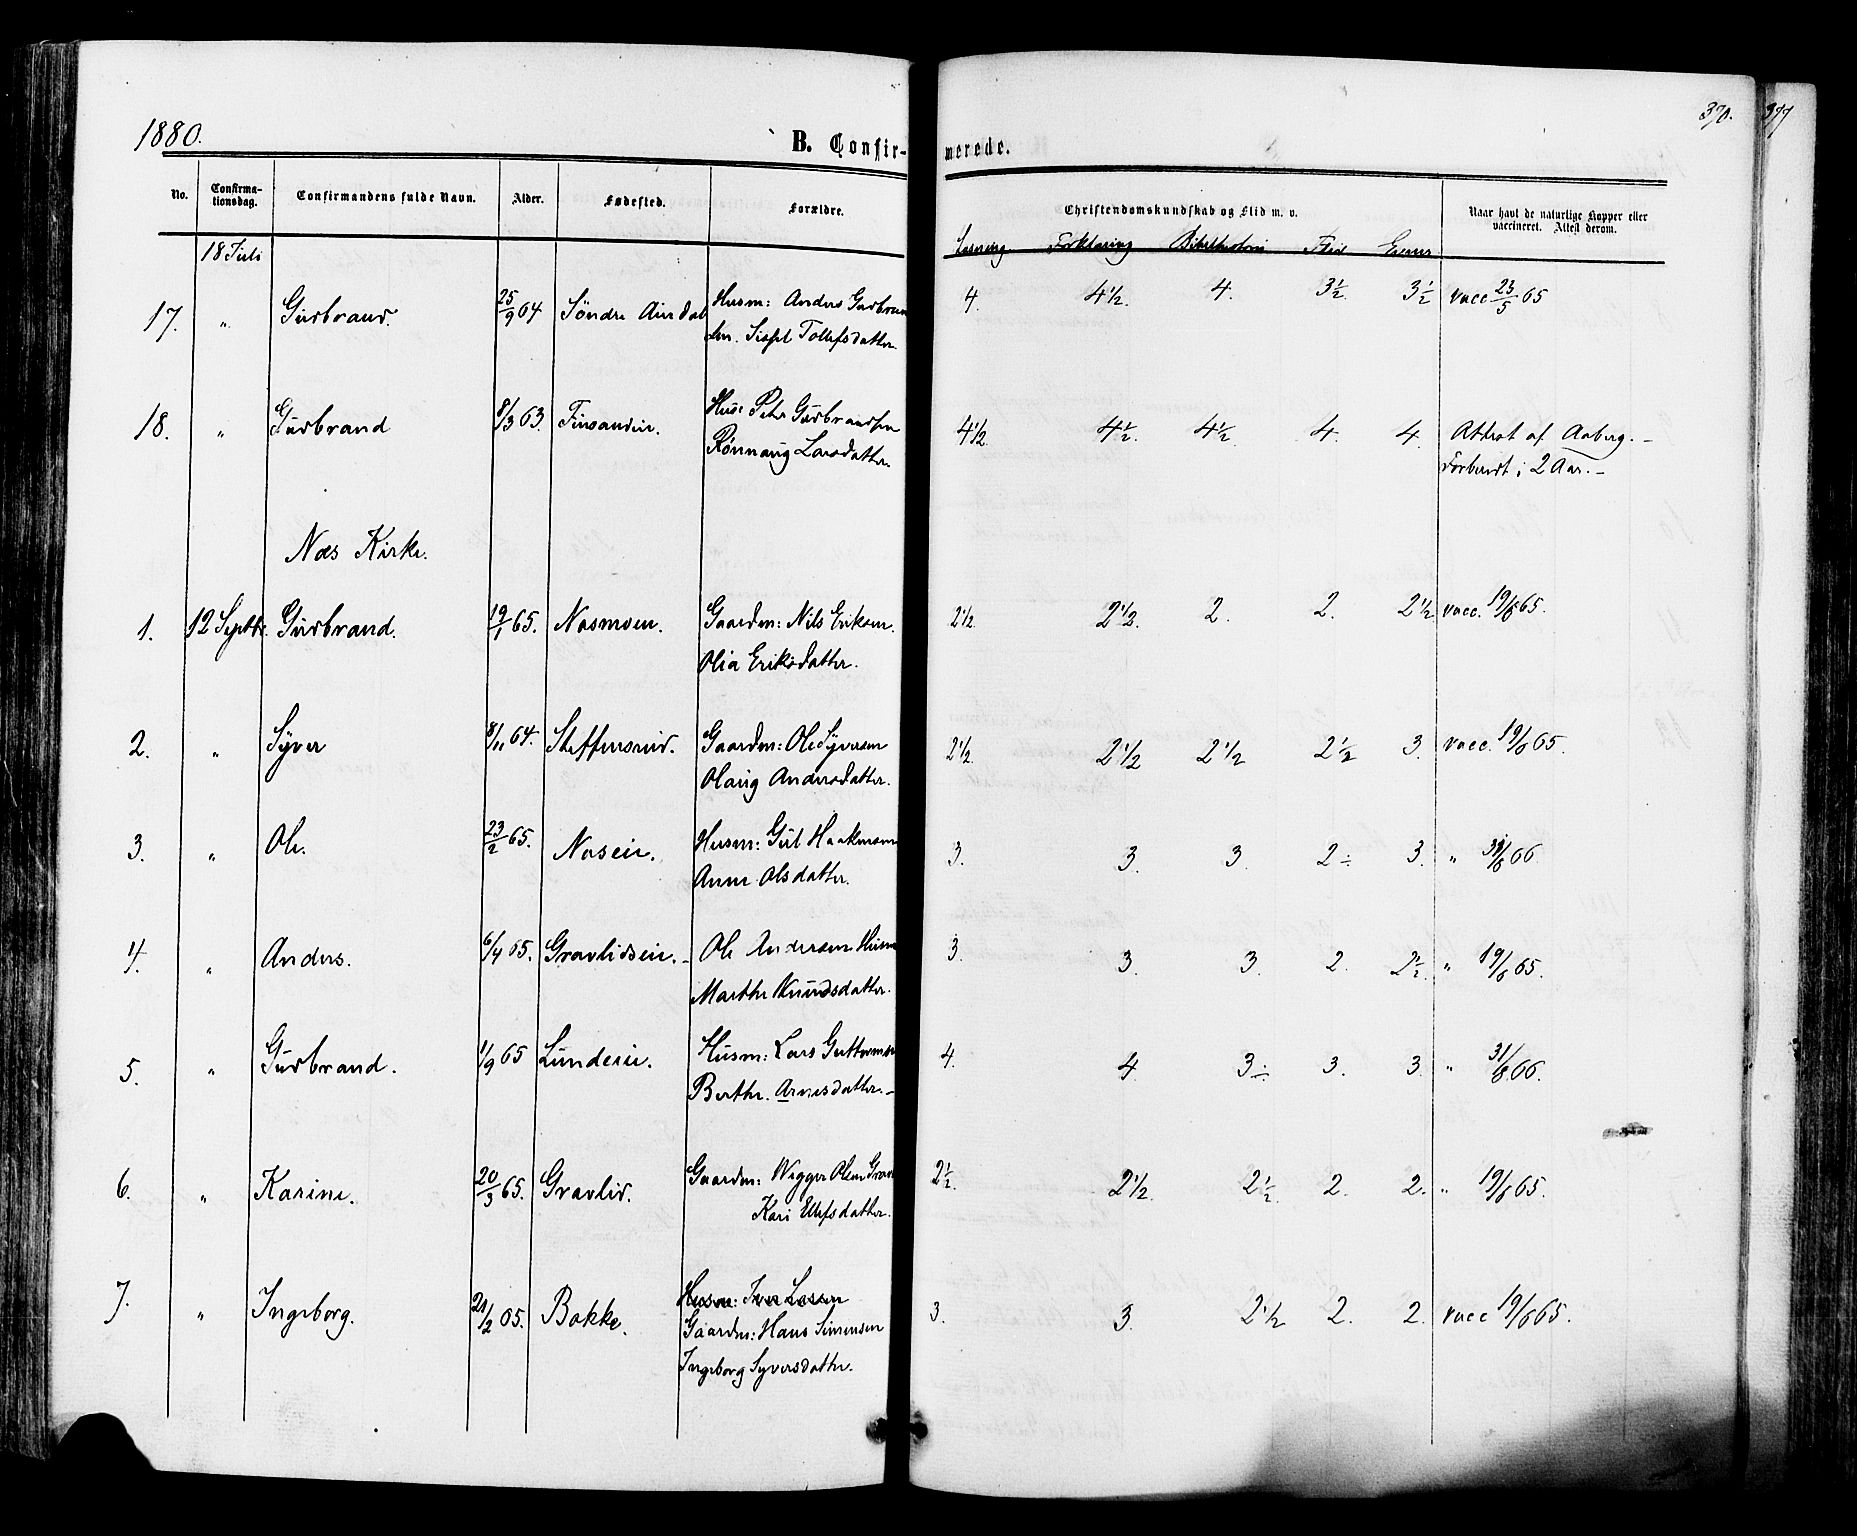 1880.
370.
377
B. Confir-
merede.
No.
Confirma-
tionsdag.
Confirmandens fulde Navn.
Alder.
Fødested.
Forældre.
Christendomskundskab og Flid m. v.
Naar havt de naturlige Kopper eller
vaccineret. Attest derom.
Læsning Forklaring Bibelhistorie Flid Evner
18 Juli
17. " Gudbrand. 25/9 64 Søndre Aurdal Husm: Anders Gudbran 4. 4½. 4. 3½. 3½ vacc 23/5 65
sen. Sissel Tollefsdatter.
18. " Gudbrand 8/3 63. Finsandeie. Hus: Peder Gudbrandsen 4½ 4½. 4½ 4. 4. Attest af Aaberg. -
Rønnaug Larsdatter. Forberedt i 2 Aar. -
Næs Kirke.
1. 12 Septbr. Gudbrand. 19/1 65. Næsmoen. Gaardm: Nils Eriksen. 2½ 2½. 2. 2. 2½ vacc. 19/6 65.
Olia Eriksdatter.
2. " Syver 8/11 64. Steffensrud. Gaardm: Ole Syversen 2½ 2½ 2½ 2½ 3. vacc. 19/6 65.
Olaug Andersdatter.
3. " Ole. 23/2 65. Næseie. Husm: Gul Haakensen 3. 3. 3. 2÷ 3. " 31/8 66
Anne Olsdatter.
4. " Anders. 6/4 65. Gravlidseie. - Ole Andersen Husm 3. 3. 3. 2. 2½. " 19/6 65.
Marthe Knudsdatter.
5. " Gudbrand. 1/9 65 Lundeeie. Husm: Lars Guttormsen 4. 4. 3÷ 3. 3. " 31/8 66.
Berthe. Arnesdatter. -
6. " Karine. 20/3 65. Gravlid. Gaardm: Wegger Olsen Grav 2½ 2½. 2½. 2. 2. " 19/6 65.
Kari Ulefsdatter.
7. " Ingeborg. 21/2 65. Bakke. Husm: Iver Larsen 3. 3. 2½ 2. 2. vacc 19/6 65.
Gaardm: Hans Simensen
Ingeborg Syversdatter.